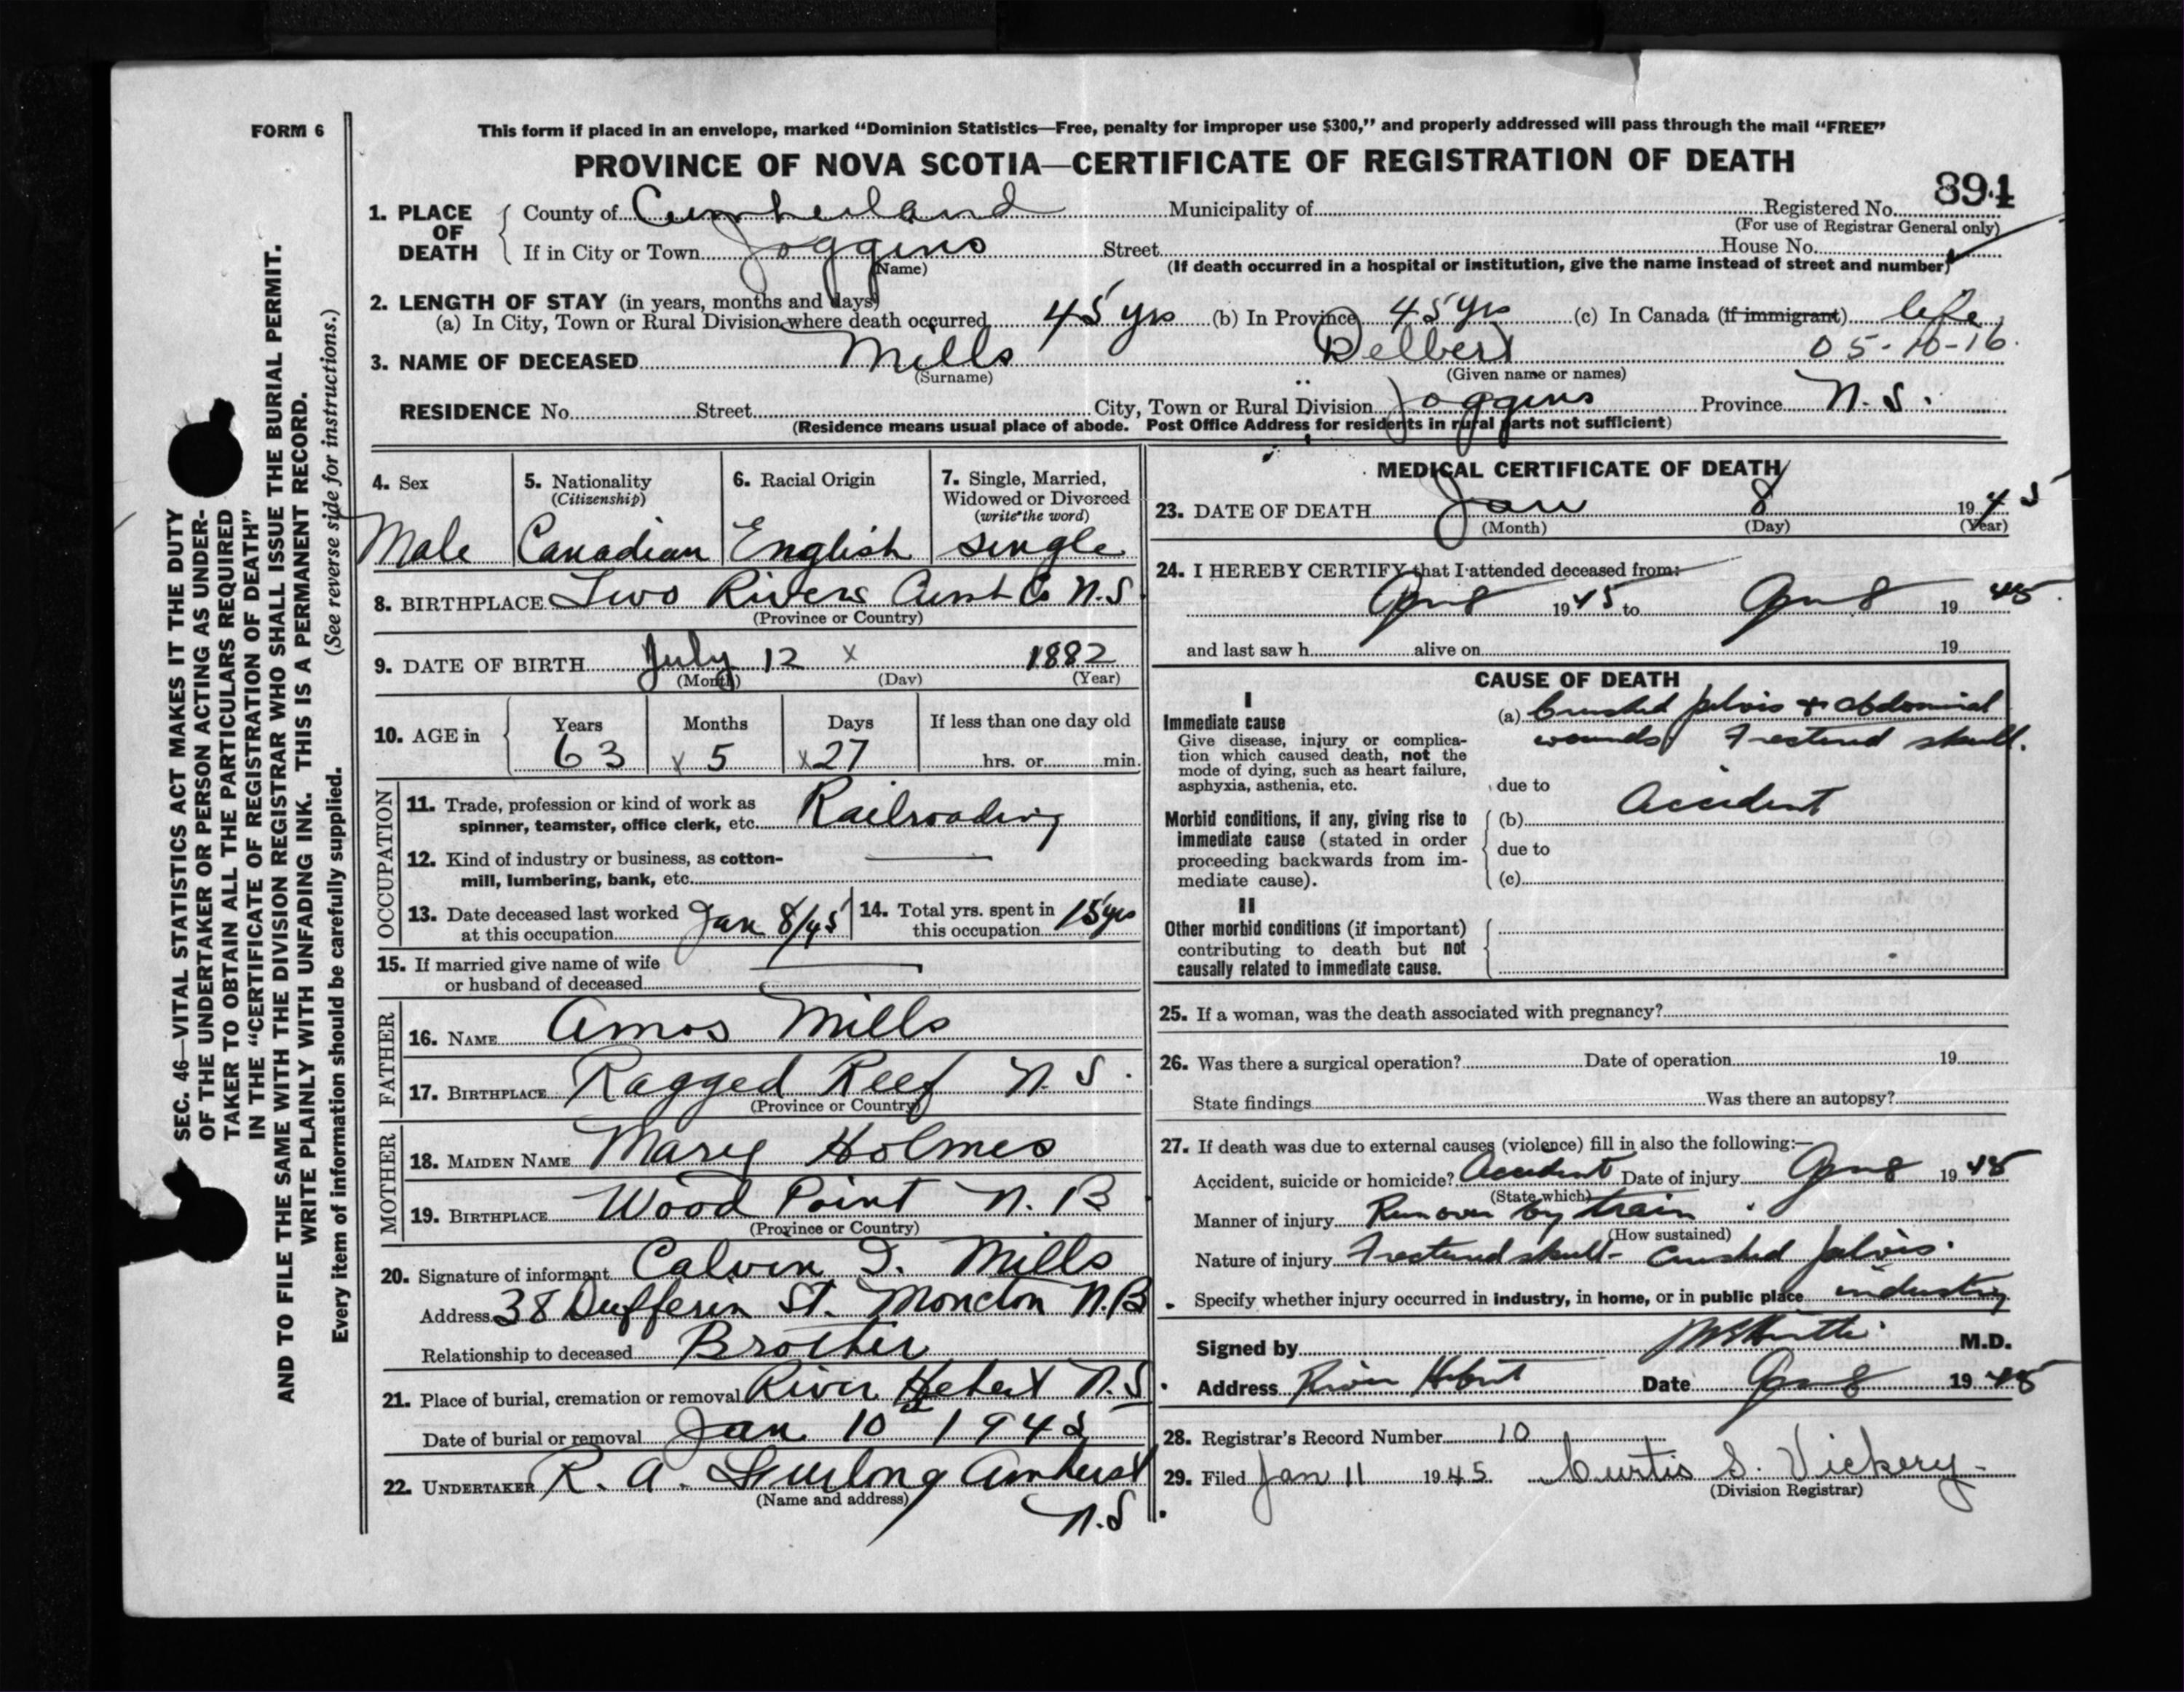 FORM 6
This form if placed in an envelope, marked “Dominion Statistics—Free, penalty for improper use $300,” and properly addressed will pass through the mail “FREE”
PROVINCE OF NOVA SCOTIA—CERTIFICATE OF REGISTRATION OF DEATH
1. PLACE OF DEATH County of Cumberland Municipality of Registered No. 891
(For use of Registrar General only)
If in City or Town Joggins Street House No.
(Name) (If death occurred in a hospital or institution, give the name instead of street and number)
2. LENGTH OF STAY (in years, months and days)
(a) In City, Town or Rural Division where death occurred 45 yrs (b) In Province 45 yrs (c) In Canada (if immigrant) life
05-10-16
3. NAME OF DECEASED Mills Delbert
(Surname) (Given name or names)
RESIDENCE No. Street City, Town or Rural Division Joggins Province N.S.
(Residence means usual place of abode. Post Office Address for residents in rural parts not sufficient)
4. Sex Male
5. Nationality (Citizenship) Canadian
6. Racial Origin English
7. Single, Married, Widowed or Divorced (write the word) single
8. BIRTHPLACE Two Rivers Cumb Co N.S
(Province or Country)
9. DATE OF BIRTH July 12 x 1882
(Month) (Day) (Year)
10. AGE in Years Months Days If less than one day old
63 x 5 x 27 hrs. or min.
OCCUPATION
11. Trade, profession or kind of work as spinner, teamster, office clerk, etc. Railroading
12. Kind of industry or business, as cotton-mill, lumbering, bank, etc.
13. Date deceased last worked at this occupation Jan 8/45
14. Total yrs. spent in this occupation 15 yrs
15. If married give name of wife or husband of deceased
FATHER
16. NAME Amos Mills
17. BIRTHPLACE Ragged Reef N.S.
(Province or Country)
MOTHER
18. MAIDEN NAME Mary Holmes
19. BIRTHPLACE Wood Point N.B
(Province or Country)
20. Signature of informant Calvin I. Mills
Address 38 Dufferin St. Moncton N.B
Relationship to deceased Brother
21. Place of burial, cremation or removal River Hebert N.S.
Date of burial or removal Jan 10 1945
22. UNDERTAKER R. A. Furlong Amherst
(Name and address)
N.S
MEDICAL CERTIFICATE OF DEATH
23. DATE OF DEATH Jan 8 1945
(Month) (Day) (Year)
24. I HEREBY CERTIFY that I attended deceased from:
Jan 8 1945 to Jan 8 1945
and last saw h alive on 19
CAUSE OF DEATH
I
Immediate cause
Give disease, injury or complication which caused death, not the mode of dying, such as heart failure, asphyxia, asthenia, etc.
(a) Crushed pelvis & abdominal
wounds Fractured skull.
due to
Morbid conditions, if any, giving rise to immediate cause (stated in order proceeding backwards from immediate cause).
(b) Accident
due to
(c)
II
Other morbid conditions (if important) contributing to death but not causally related to immediate cause.
25. If a woman, was the death associated with pregnancy?
26. Was there a surgical operation? Date of operation 19
State findings Was there an autopsy?
27. If death was due to external causes (violence) fill in also the following:—
Accident, suicide or homicide? Accident Date of injury Jan 8 1945
(State which)
Manner of injury Run over by train
(How sustained)
Nature of injury Fractured skull - Crushed pelvis.
Specify whether injury occurred in industry, in home, or in public place industry
Signed by M.D.
Address River Hebert Date Jan 8 1945
28. Registrar's Record Number 10
29. Filed Jan 11 1945. Curtis S. Vickery
(Division Registrar)
SEC. 46—VITAL STATISTICS ACT MAKES IT THE DUTY
OF THE UNDERTAKER OR PERSON ACTING AS UNDER-
TAKER TO OBTAIN ALL THE PARTICULARS REQUIRED
IN THE “CERTIFICATE OF REGISTRATION OF DEATH”
AND TO FILE THE SAME WITH THE DIVISION REGISTRAR WHO SHALL ISSUE THE BURIAL PERMIT.
WRITE PLAINLY WITH UNFADING INK. THIS IS A PERMANENT RECORD.
Every item of information should be carefully supplied. (See reverse side for instructions.)